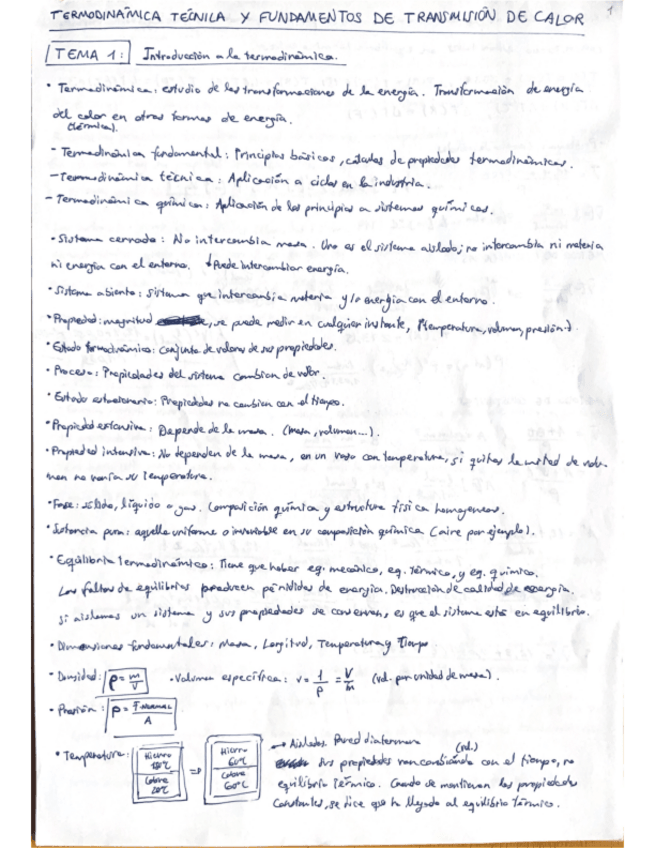 TERMODINÁMICA TÉCNICA Y FUNDAMENTOS DE TRANSMISIÓN DE CALOR 1
TEMA 1: Introducción a la termodinámica.
• Termodinámica: estudio de las transformaciones de la energía. Transformación de energía
del calor en otras formas de energía.
(térmica).
- Termodinámica fundamental: Principios básicos, cálculos de propiedades termodinámicas.
- Termodinámica técnica: Aplicación a ciclos en la industria.
- Termodinámica química: Aplicación de los principios a sistemas químicos.
• Sistema cerrado: No intercambia masa. Uno es el sistema aislado; no intercambia ni materia
ni energía con el entorno. ↓Puede intercambiar energía.
• Sistema abierto: Sistema que intercambia materia y/o energía con el entorno.
• Propiedad: magnitud , se puede medir en cualquier instante, (temperatura, volumen, presión).
• Estado termodinámico: conjunto de valores de sus propiedades.
• Proceso: Propiedades del sistema cambian de valor.
• Estado estacionario: Propiedades no cambian con el tiempo.
• Propiedad extensiva: Depende de la masa. (masa, volumen...).
• Propiedad intensiva: No dependen de la masa, en un vaso con temperatura, si quitas la mitad de volu-
men no varía su temperatura.
• Fase: sólido, líquido o gas. Composición química y estructura física homogéneas.
• Sustancia pura: aquella uniforme o invariable en su composición química (aire por ejemplo).
• Equilibrio termodinámico: Tiene que haber eq. mecánico, eq. térmico, y eq. químico.
Las faltas de equilibrios producen pérdidas de energía. Destrucción de calidad de energía.
Si aislamos un sistema y sus propiedades se conservan, es que el sistema está en equilibrio.
• Dimensiones fundamentales: Masa, Longitud, Temperatura y Tiempo
• Densidad: ρ = m/V • Volumen específico: v = 1/ρ = V/m (vol. por unidad de masa).
• Presión: p = F NORMAL / A
• Temperatura: Hierro Cobre 20ºC ⇒ Hierro 60ºC Cobre 60ºC
→ Aislados. Pared diaterma
Sus propiedades van cambiando con el tiempo, no
equilibrio térmico. Cuando se mantienen las propiedades
constantes, se dice que ha llegado al equilibrio térmico.